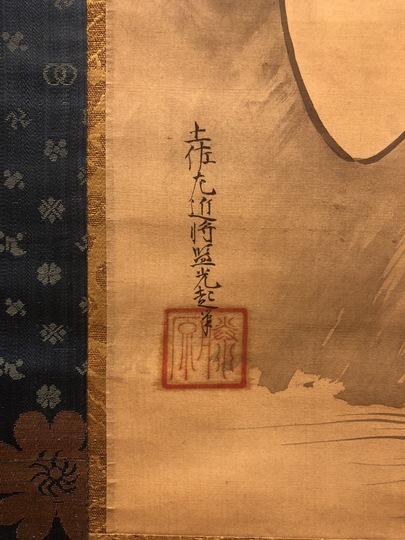 土佐左近将監光起筆
藤原